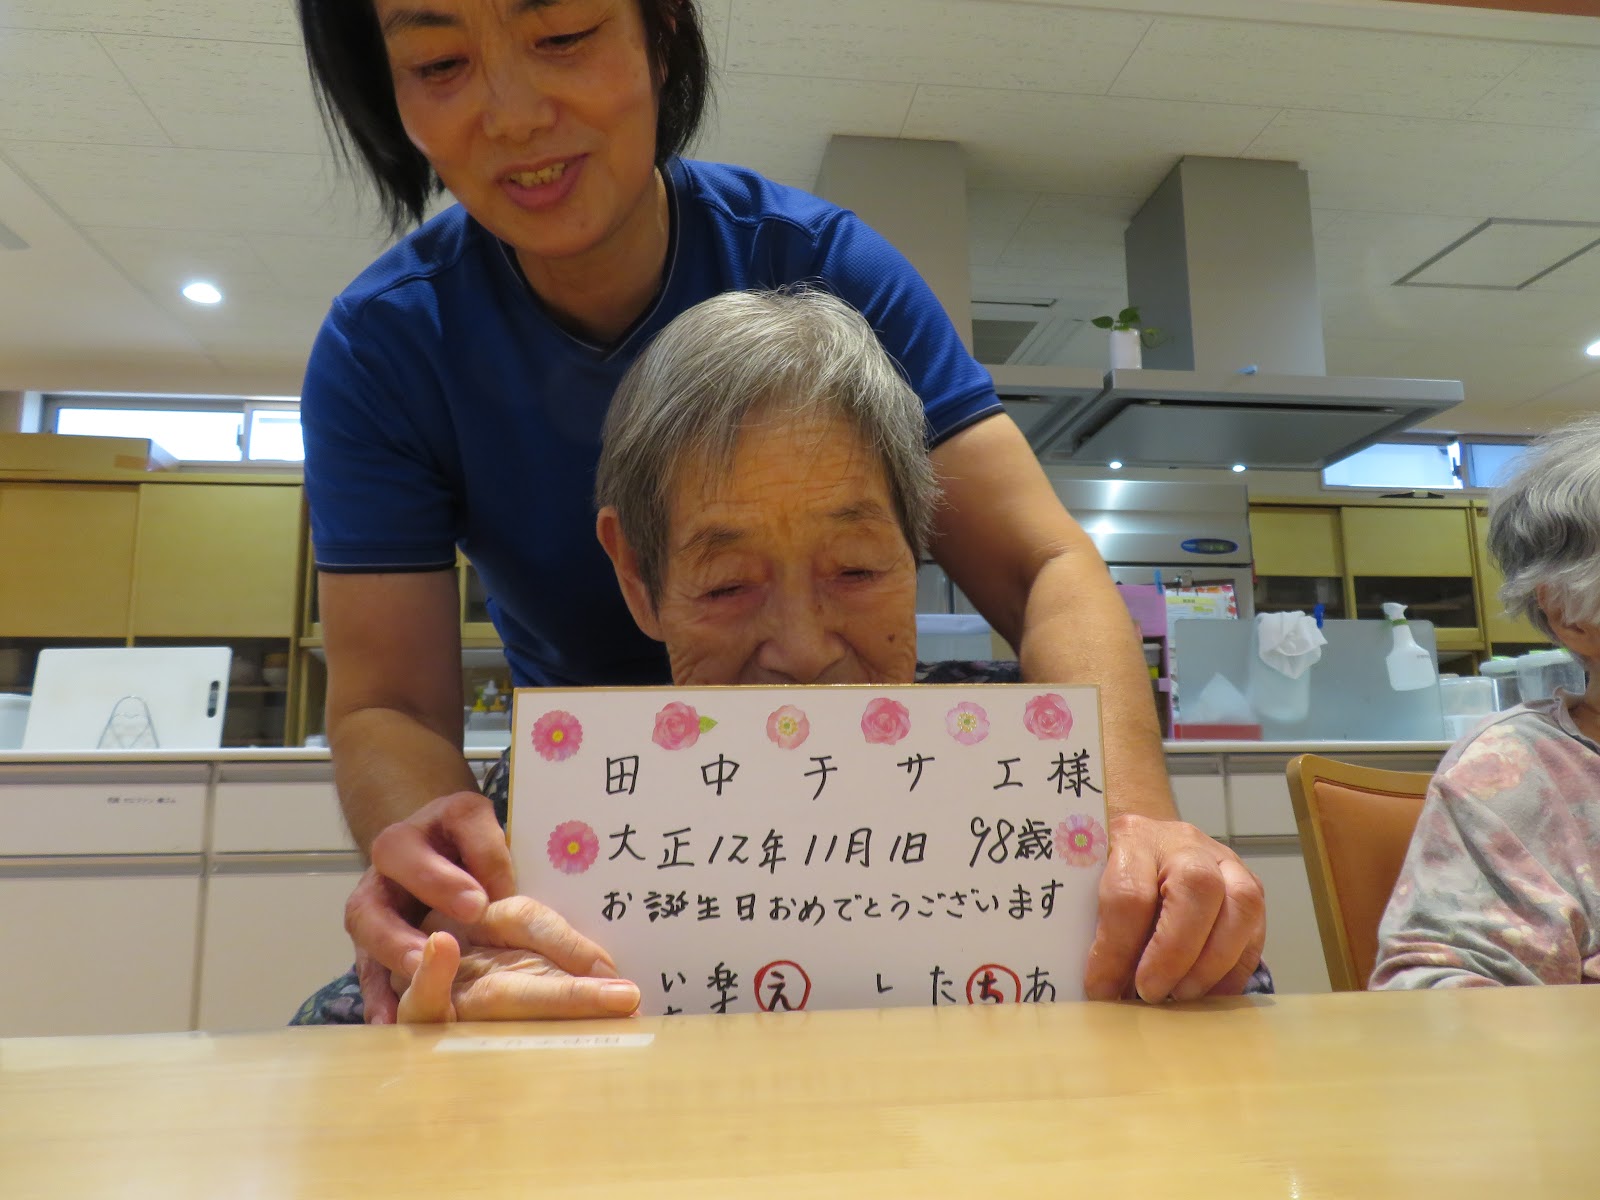 田中チサエ様
大正12年11月1日 98歳
お誕生日おめでとうございます
い楽え したちあ